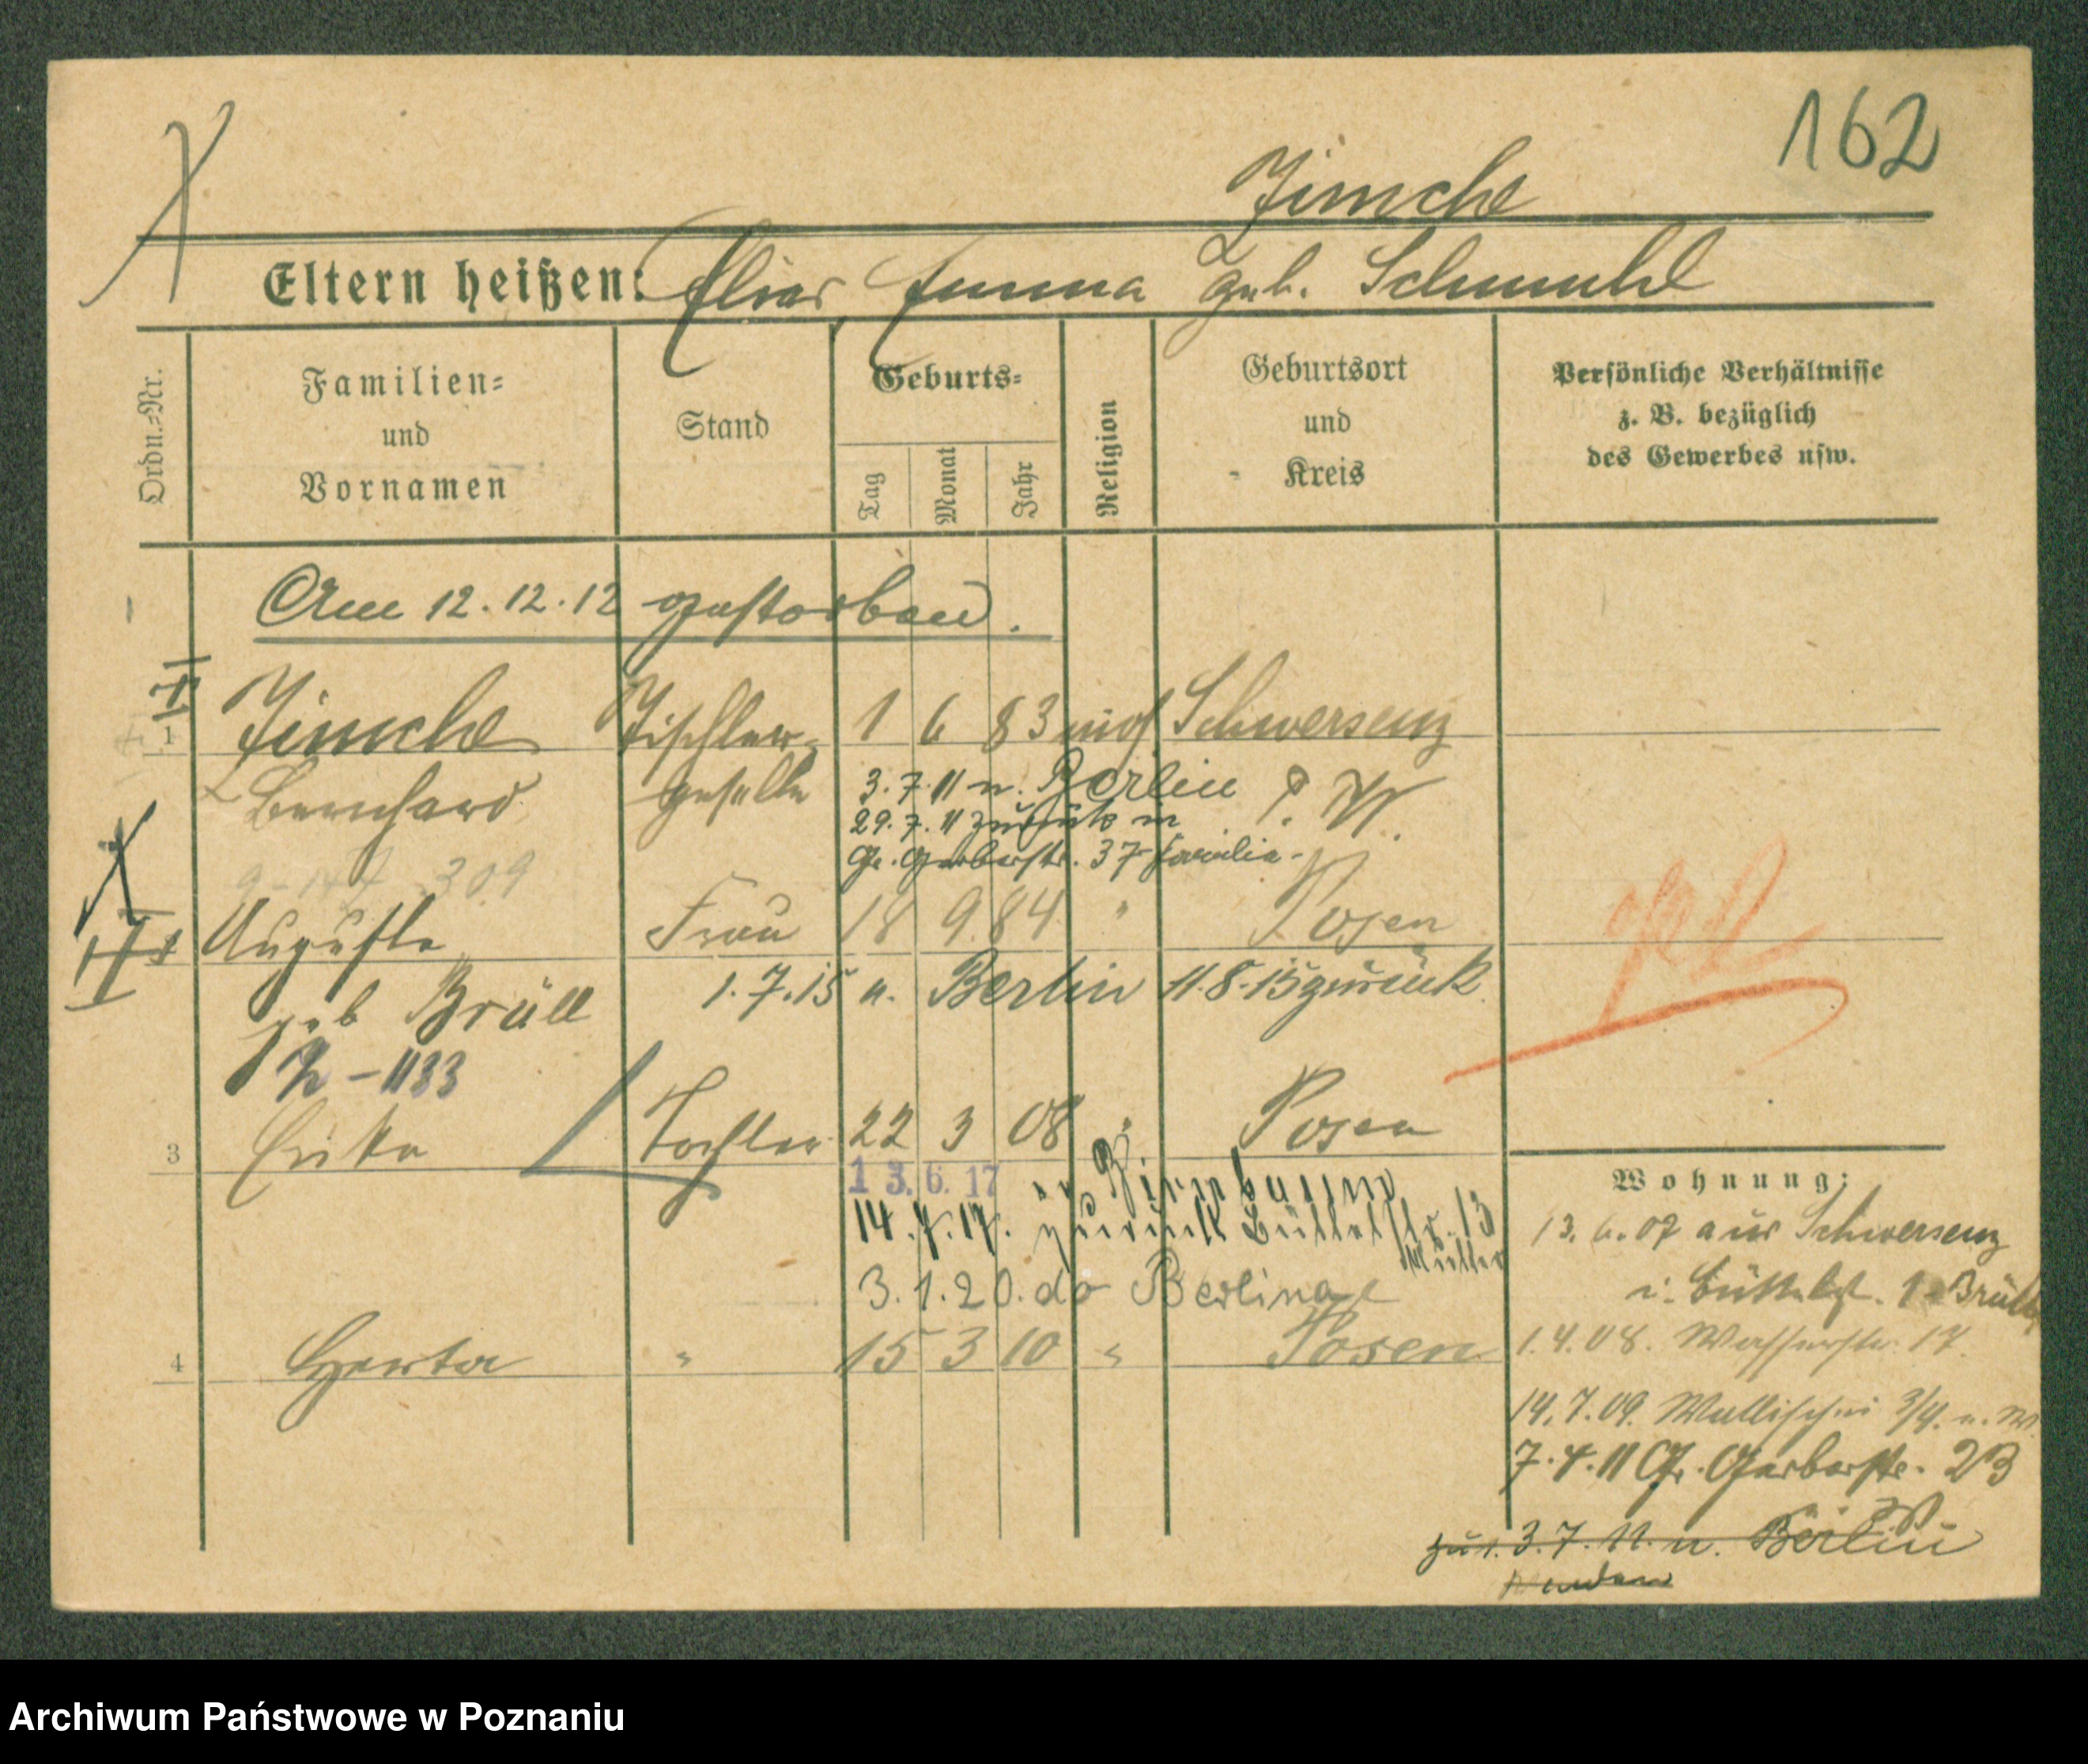 162
Zimche
Eltern heißen: Elias, Emma geb. Schmuhl
Ordn.=Nr.
Familien=
und
Vornamen
Stand
Geburts=
Tag
Monat
Jahr
Religion
Geburtsort
und
Kreis
Persönliche Verhältnisse
z. B. bezüglich
des Gewerbes usw.
Am 12.12.12 gestorben.
1 Zimche Tischler= 1 6 83 mos Schwersenz
Bernhard geselle 3.7.11 n. Berlin
29.7.11 zurück n
Gr. Gerberstr. 37 Familie
309
Auguste Frau 18 9 84 " Posen
1.7.15 n. Berlin 11.8.15 zurück
geb Brüll
1133
3 Erika Tochter 22 3 08 " Posen
13.6.17 n. Birnbaum
14.7.17. zurück Büttelstr. 13
Mutter
3.1.20. do Berlina
4 Herta " 15 3 10 " Posen
Wohnung:
13.6.07 aus Schwersenz
i. Büttelst. Brüll
1.4.08. Wasserstr. 17.
14.7.09. Wallischei 3/4.
7.4.11 Gr. Gerberstr. 23
zu 1. 3.7.11. n. Berlin
Archiwum Państwowe w Poznaniu